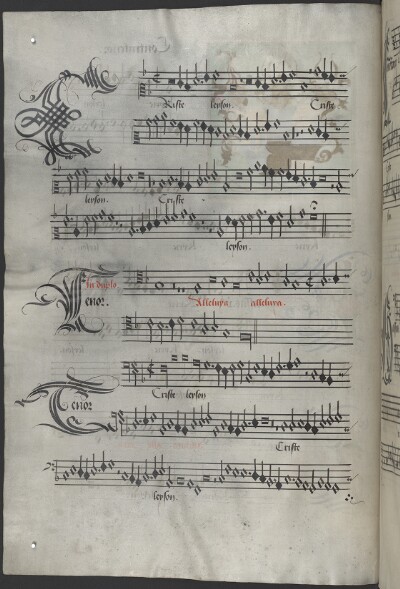 Riste leyson. Criste
leyson. Criste
leyson.
In duplo
Tenor. Alleluya alleluya.
Criste leyson
Tenor
Criste
leyson.